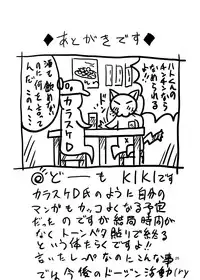 ◆あとがきです◆
ハトくんの
なら
なめられる
酒も飲めない
のに何をよって
んだこの
カラスケD
@どーも KIKIです
カラスケD氏のように自分の
マンガもカッコよくなる予定
だったのですが結局時間が
なくトーンベタ貼りで終る
という体たらくですよ!!
言いたしっぺなのにこんな事
では今後のドージン活動(ry